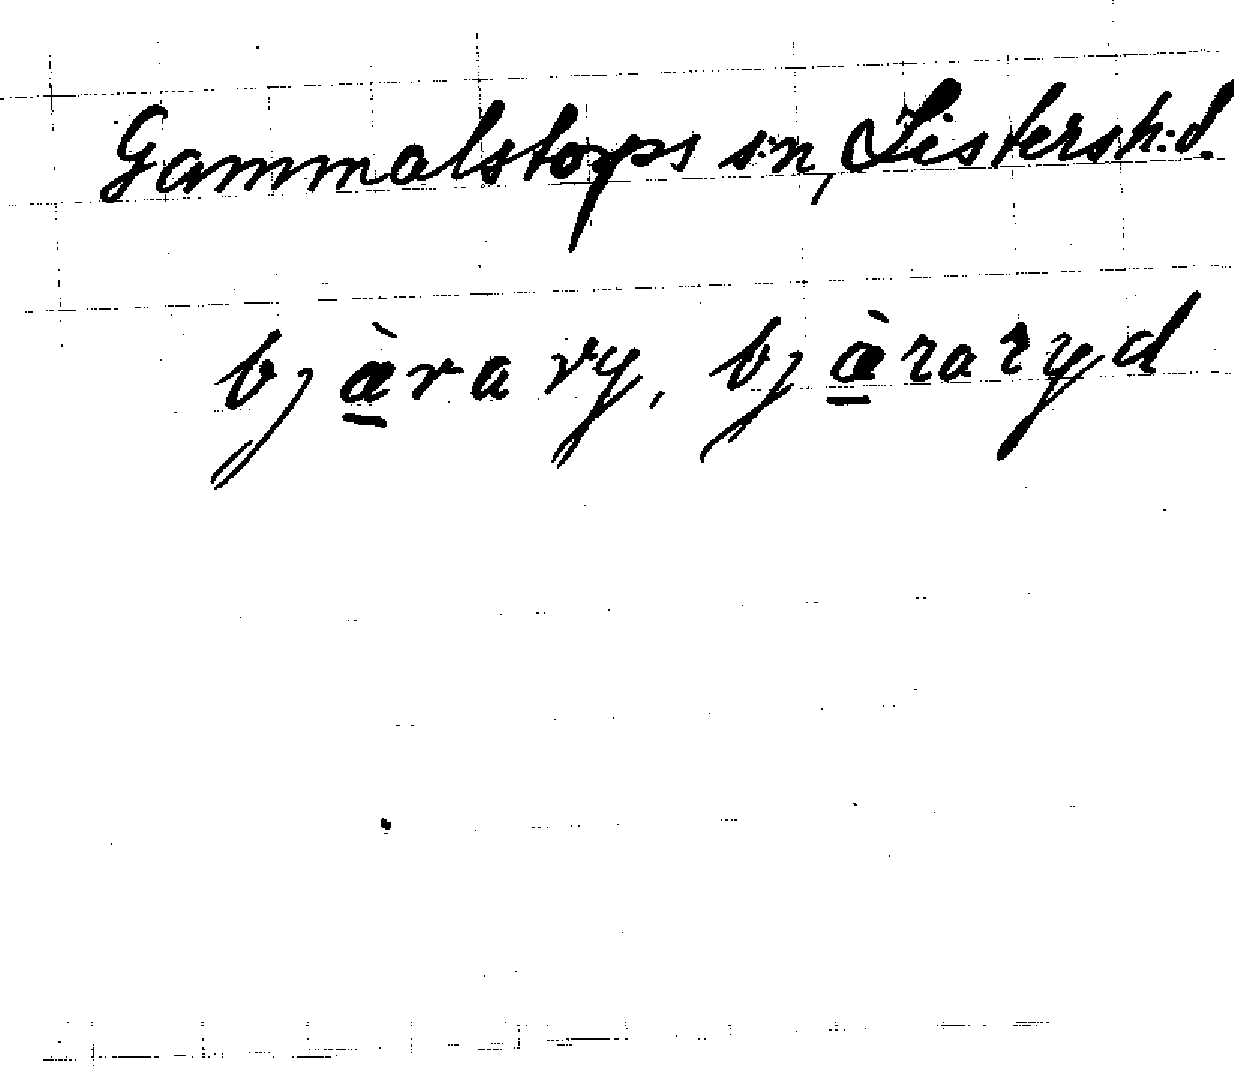 Gammalstorps s:n, Listersh:d.
bjæ̱̀rary, bjæ̱̀raryd